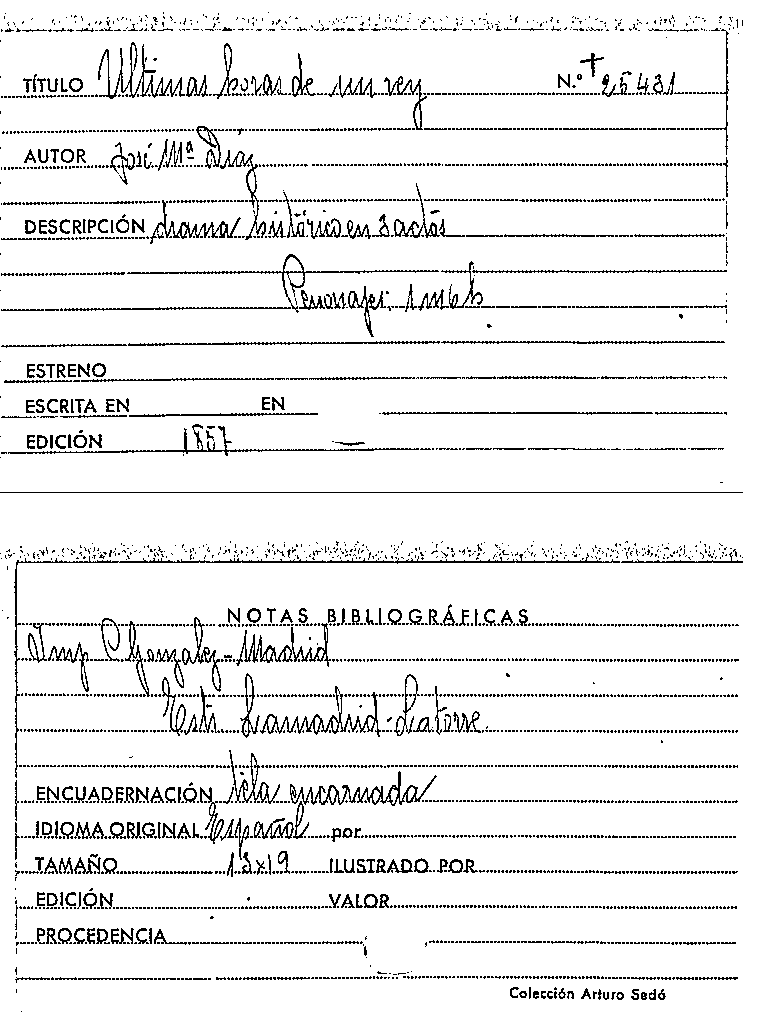 TÍTULO Ultimas horas de un rey N.º +25431
AUTOR José Mª Díaz
DESCRIPCIÓN drama histórico en 3 actos
Personajes: 1 m 6 h
ESTRENO
ESCRITA EN EN
EDICIÓN 1857 —
NOTAS BIBLIOGRÁFICAS
Imp C Gonzalez - Madrid
Estr. Lamadrid - Latorre.
ENCUADERNACIÓN tela encarnada
IDIOMA ORIGINAL Español por
TAMAÑO 13x19 ILUSTRADO POR
EDICIÓN VALOR
PROCEDENCIA
Colección Arturo Sedó